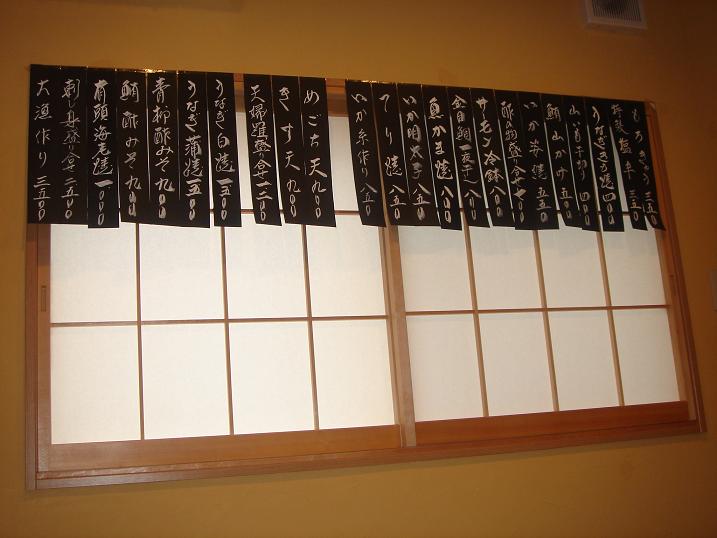 もろきゅう 三五〇
うなぎきも焼 四〇〇
山芋千切り 四〇〇
鮪山かけ 五〇〇
いか姿焼 五五〇
酢の物盛り合せ 七〇〇
サーモン冷鉢 八〇〇
金目鯛一夜干し 八〇〇
魚かま焼 八〇〇
いか明太子 八五〇
てり焼 八五〇
いか糸作り 八五〇
めごち天 九〇〇
きす天 九〇〇
天婦羅盛り合せ 一二〇〇
うなぎ白焼 一五〇〇
うなぎ蒲焼 一五〇〇
青柳酢みそ 九〇〇
鮹酢みそ 九〇〇
有頭海老焼 一〇〇〇
刺し身盛り合せ 二五〇〇
大漁作り 三五〇〇